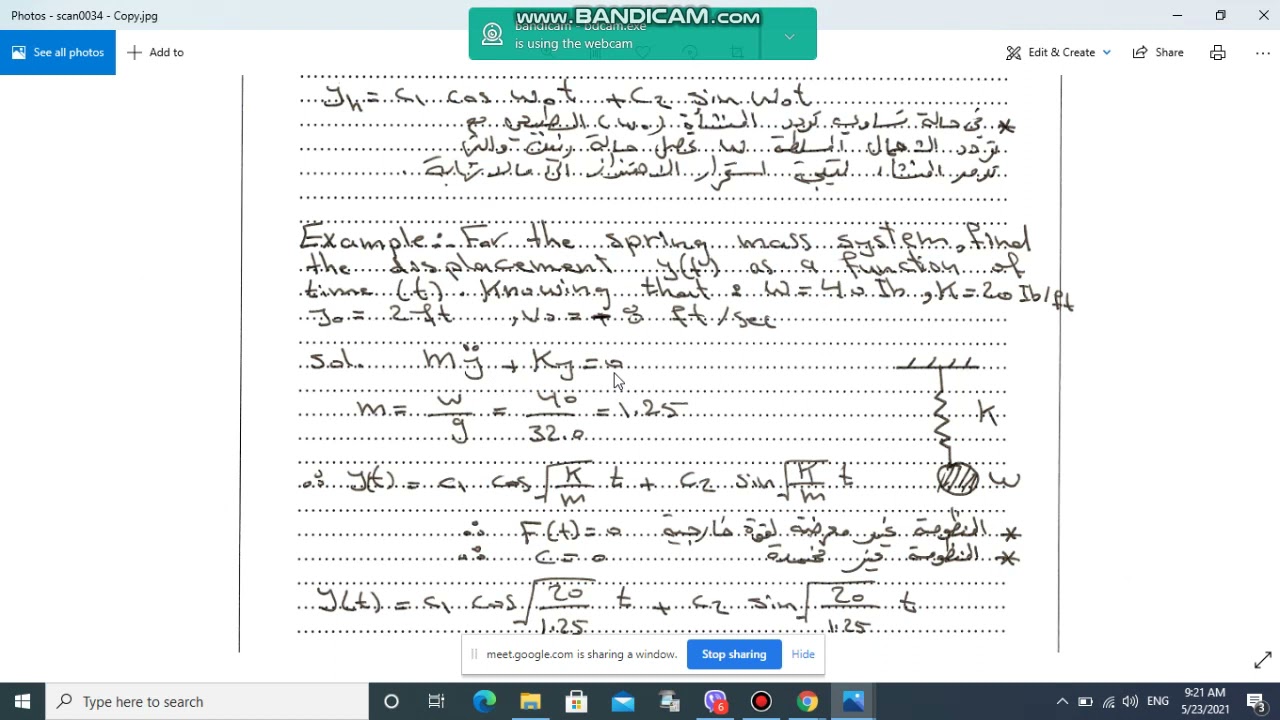 Photos - scan0034 - Copy.jpg
WWW.BANDICAM.COM
bandicam - bdcam.exe
is using the webcam
See all photos
Add to
Edit & Create
Share
yh = c1 cos wot + c2 sin wot
* فى حالة تساوى تردد المنشأة (wo) الطبيعى مع
تردد الاحمال المسلطة w تحصل حالة رنين والتى
تدمر المنشأ، نتيجة استمرار الاهتزاز الى مالا نهاية
Example:- For the spring mass system, find
the displacement y(t) as a function of
time (t). Knowing that: W = 40 Ib, K = 20 Ib/ft
yo = 2 ft , vo = - 8 ft/sec
sol. mÿ + Ky = 0
m = w/g = 40/32.0 = 1.25
K
∴ y(t) = c1 cos √(K/m) t + c2 sin √(K/m) t
W
* المنظومة غير معرضة لقوة خارجية F(t) = 0 ∴
* المنظومة غير مخمدة c = 0 ∴
y(t) = c1 cos √(20/1.25) t + c2 sin √(20/1.25) t
meet.google.com is sharing a window.
Stop sharing
Hide
Type here to search
6
ENG
9:21 AM
5/23/2021
3